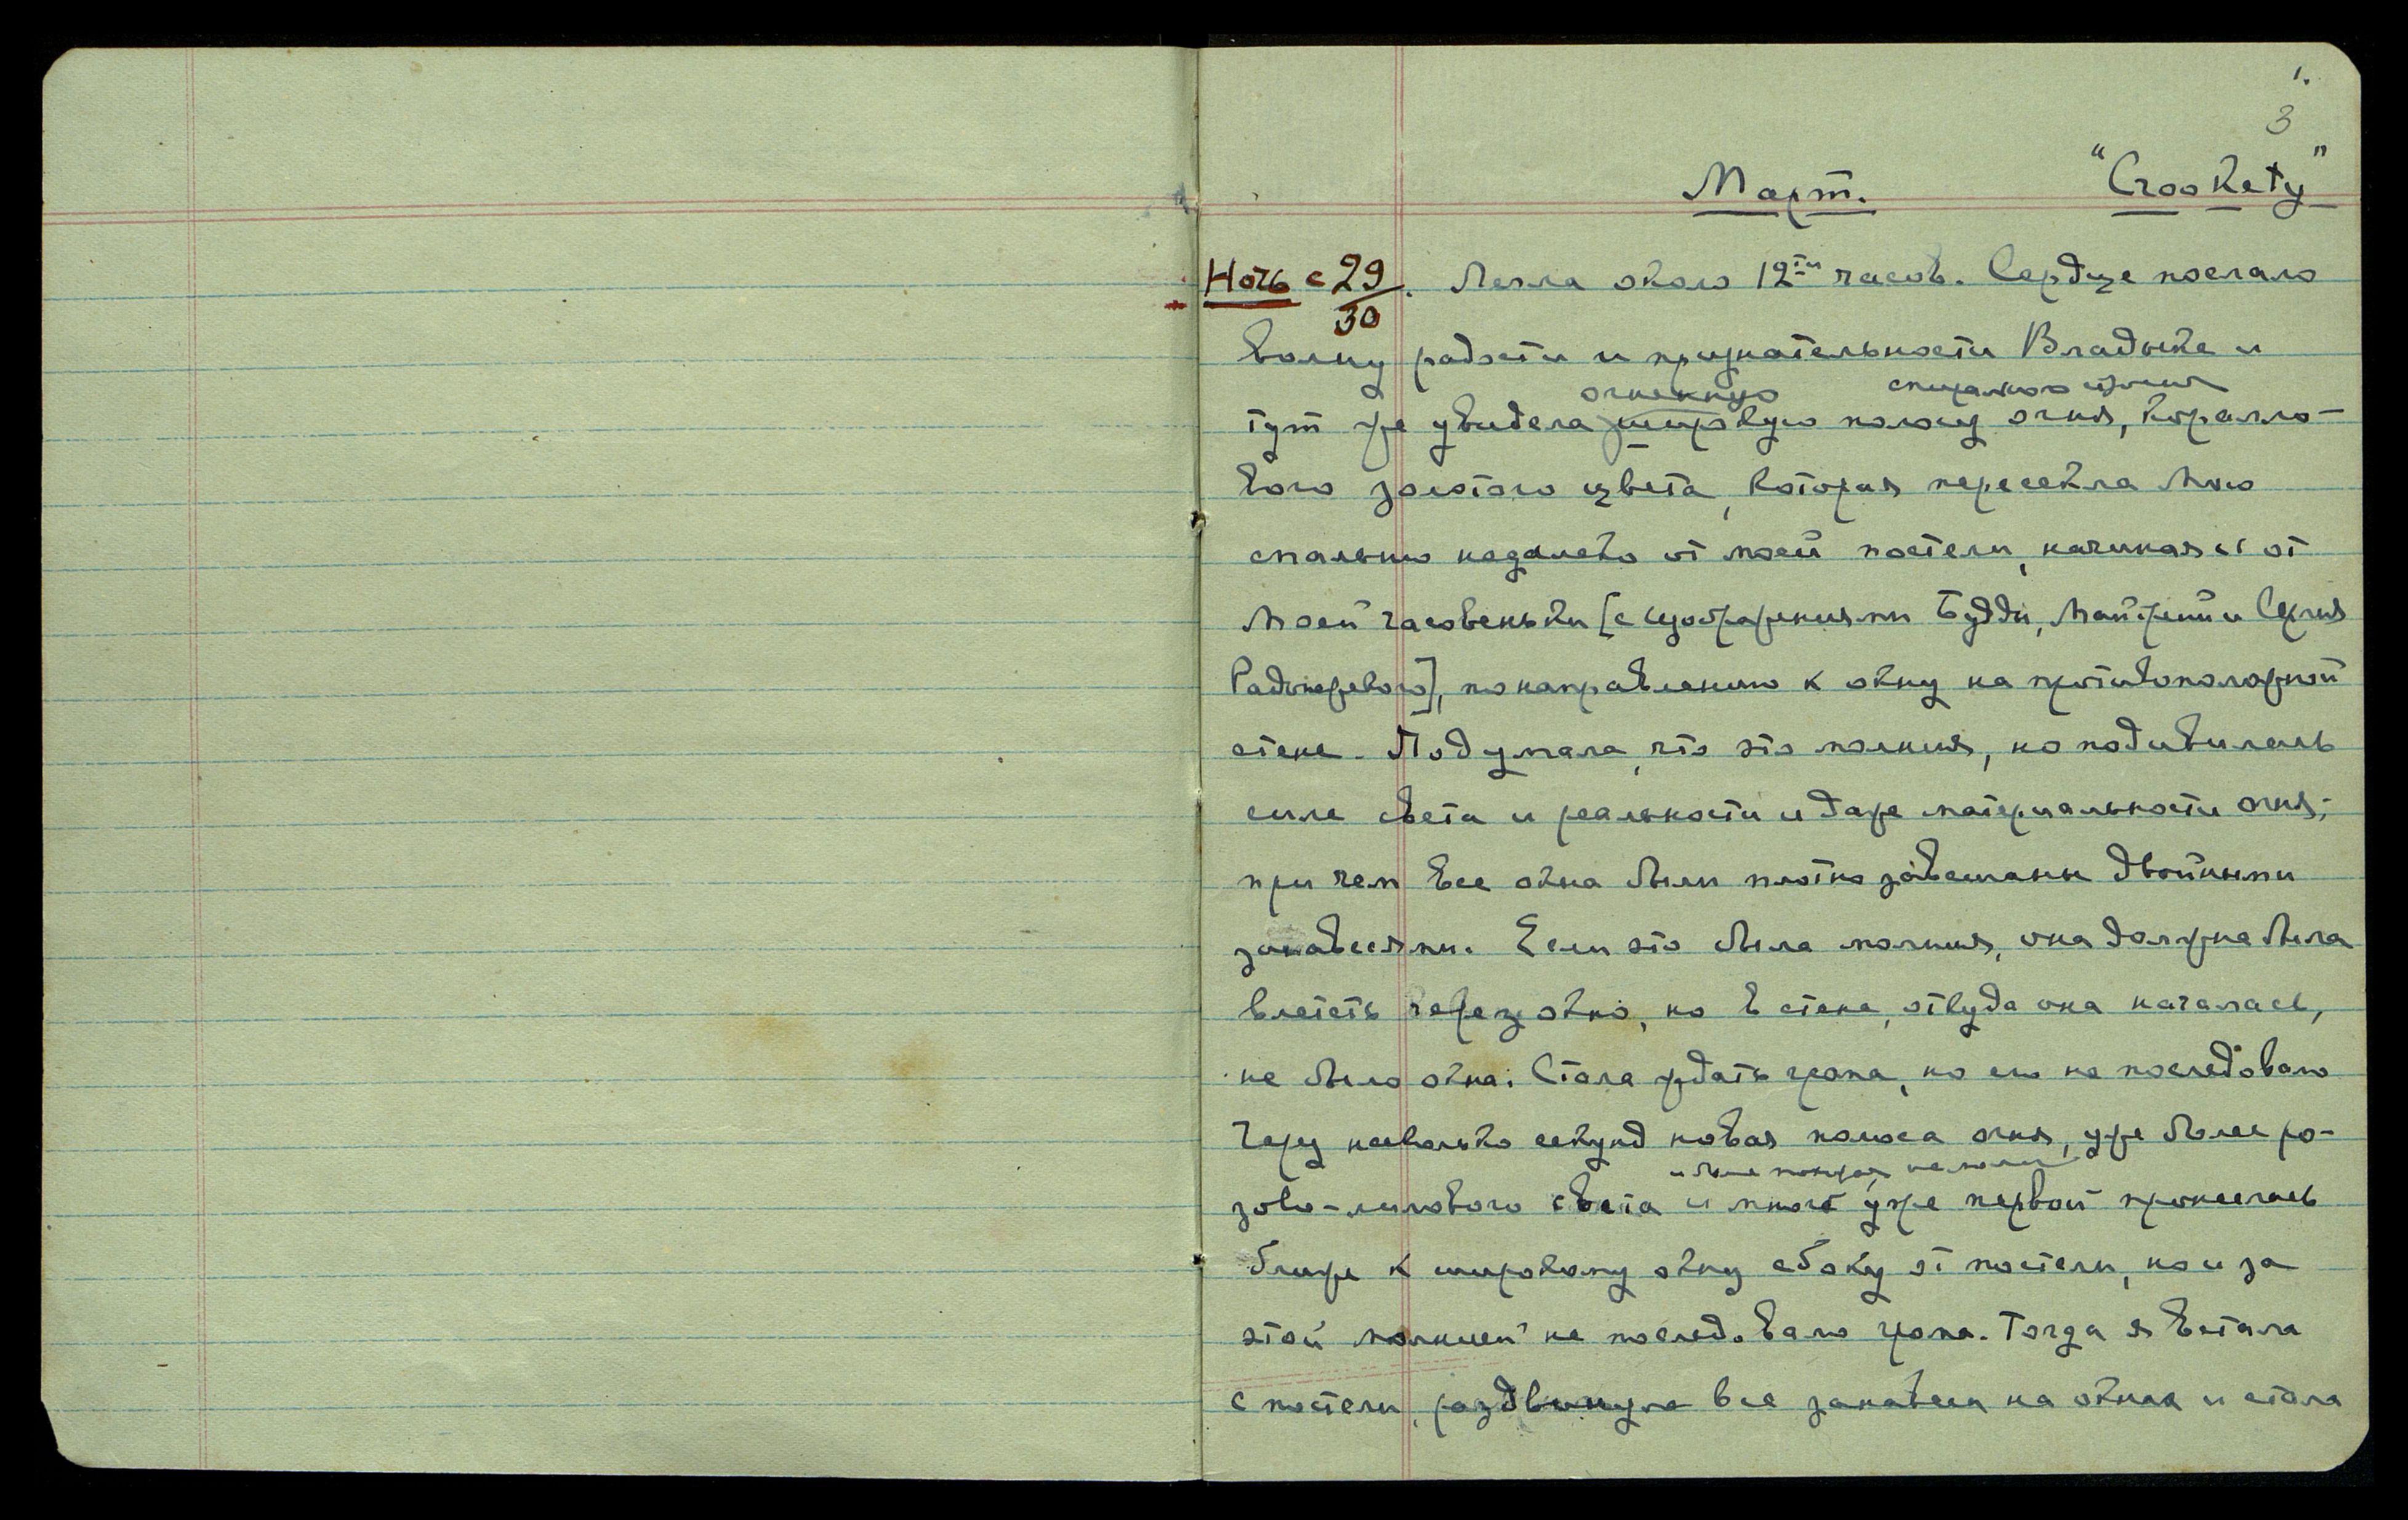 1.
3
Март. "Crookety"
Ночь с 29/30. Легла около 12ти часов. Сердце послало
волну радости и признательности Владыке и
огненную
тут же увидела широкую полосу огня, коралло-
вого золотого цвета, которая пересекла мою
спальню недалеко от моей постели, начиная от
моей часовеньки [с изображениями Будды, Майтрейи и Сергия
Радонежского], по направлению к окну на противоположной
стене. Подумала, что это молния, но подивилась
силе света и реальности и даже материальности огня;
при чем все окна были плотно завешаны двойными
занавесями. Если это была молния, она должна была
влететь через окно, но в стене, откуда она началась,
не было окна. Стала ждать грома, но его не последовало
Через несколько секунд новая полоса огня, уже более ро-
зово-лилового света и много уже первой пронеслась
ближе к широкому окну сбоку от постели, но и за
этой молнией не последовало грома. Тогда я встала
с постели, раздвинула все занавеси на окнах и стала